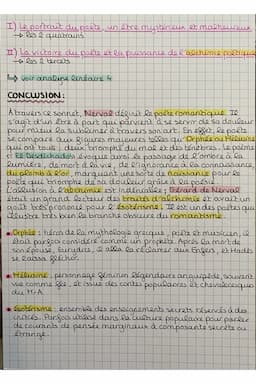 I) Le portrait du poète, un être mystérieux et malheureux
→ les 2 quatrains
II) La victoire du poète et la puissance de l'alchimie poétique
→ les 2 tercets
↳ voir analyse linéaire 4
CONCLUSION :
A travers ce sonnet, Nerval définit le poète romantique. Il
s'agit d'un être à part qui parvient à se servir de sa douleur
pour mieux la sublimer à travers son art. En effet, le poète
se compare aux figures majeures telles qu'Orphée ou Mélusine
qui ont tous deux triomphé du mal et des ténèbres. Le poème
« El Desdichado » évoque ainsi le passage de l'ombre à la
lumière, de la mort à la vie, de l'ignorance à la connaissance
du plomb à l'or, marquant une sorte de naissance pour le
poète qui triomphe de sa douleur grâce à la poésie.
L'allusion à l'alchimie est indéniable ; Gérard de Nerval
était un grand lecteur des traités d'alchimie et avait un
goût très prononcé pour l'ésotérisme. Il est un des poètes qui
illustre très bien la branche obscure du romantisme.
• Orphée : héros de la mythologie grecque, poète et musicien, il
était parfois considéré comme un prophète. Après la mort de
son épouse, Eurydice, il alla la réclamer aux Enfers, et Hadès
se laissa fléchir.
• Mélusine : personnage féminin légendaire anguipède, souvent
vue comme fée, et issue des contes populaires et chevaleresques
du M-A.
• Esotérisme : ensemble des enseignements secrets réservés à des
initiés. Parfois utilisé dans la culture populaire pour parler
de courants de pensée marginaux à composante secrète ou
étrange.